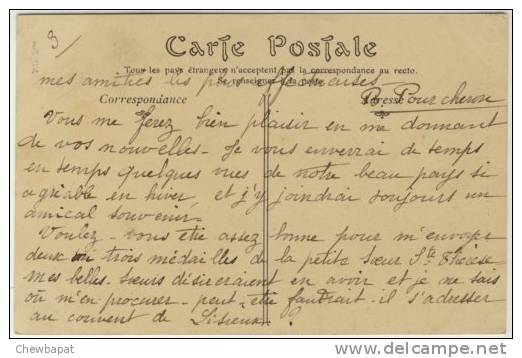 3/
Carte Postale
Tous les pays étrangers n'acceptent pas la correspondance au recto.
Se renseigner à la poste
mes amitiés les plus affectueuses
Correspondance
Adresse
Vous me ferez bien plaisir en me donnant
de vos nouvelles. Je vous enverrai de temps
en temps quelques vues de notre beau pays si
agréable en hiver, et j'y joindrai toujours un
amical souvenir.
Voulez-vous etre assez bonne pour m'envoyer
deux ou trois médailles de la petite Sœur Ste Thérèse
mes belles-sœurs désireraient en avoir et je ne sais
où m'en procurer - peut-etre faudrait-il s'adresser
au couvent de Lisieux ?
Chewbapat
delcampe.net